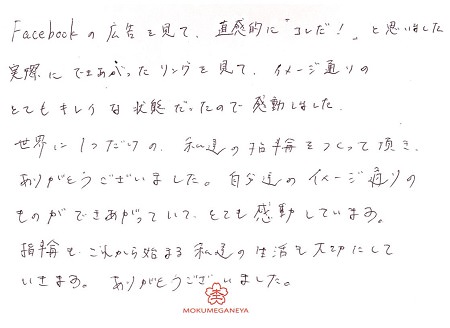 Facebookの広告を見て、直感的に"コレだ!"と思いました
実際にできあがったリングを見て、イメージ通りの
とてもキレイな状態だったので感動しました。
世界に1つだけの、私達の指輪をつくって頂き、
ありがとうございました。自分達のイメージ通りの
ものができあがっていて、とても感動しています。
指輪も、これから始まる私達の生活も大切にして
いきます。ありがとうございました。
MOKUMEGANEYA